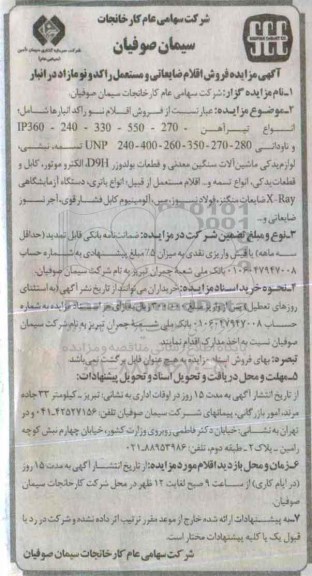 شرکت سهامی عام کارخانجات
سیمان صوفیان
SCC
آگهی مزایده فروش اقلام ضایعاتی و مستعمل راکد و نو مازاد در انبار
۱-نام مزایده گزار: شرکت سهامی عام کارخانجات سیمان صوفیان.
۲-موضوع مزایده: عبارتست از فروش اقلام نو راکد انبارها شامل:
انواع تیرآهن 270 - 550 - 330 - 240 - IP360
و ناودانی 280-270-350-260-400-240 UNP تسمه، نبشی،
لوازم یدکی ماشین آلات سنگین معدنی و قطعات بولدوزر D9H، الکترو موتور، کابل و
قطعات یدکی، انواع تسمه و... اقلام مستعمل از قبیل: انواع باتری، دستگاه آزمایشگاهی
X-Ray ضایعات منگنز، فولاد نسوز، مس، آلومینیوم کابل فشار قوی، آجر نسوز
ضایعاتی و...
۳-نوع و مبلغ تضمین شرکت در مزایده: ضمانتنامه بانکی قابل تمدید (حداقل
سه ماهه) یا فیش واریزی نقدی به میزان ۵٪ مبلغ پیشنهادی به شماره حساب
۰۱۰۶۰۲۷۹۴۷۰۰۸ بانک ملی شعبه چمران تبریز به نام شرکت سیمان صوفیان.
۴-نحوه خرید اسناد مزایده: خریداران می‌توانند از تاریخ نشر آگهی (به استثنای
روزهای تعطیل) پس از واریز مبلغ ریال بهای خرید اسناد مزایده به شماره
حساب ۰۱۰۶۰۲۷۹۴۷۰۰۸ بانک ملی شعبه چمران تبریز به نام شرکت سیمان
صوفیان نسبت به اخذ مدارک اقدام نمایند.
تبصره: بهای فروش اسناد مزایده به هیچ عنوان قابل برگشت نمی‌باشد.
۵-مهلت و محل دریافت و تحویل اسناد و تحویل پیشنهادات:
از تاریخ انتشار آگهی به مدت ۱۵ روز در اوقات اداری به نشانی: تبریز - کیلومتر ۳۳ جاده
مرند، امور بازرگانی، پیمانهای شرکت سیمان صوفیان تلفن: ۴۲۵۲۷۱۵۶-۰۴۱ و در
تهران به نشانی: خیابان دکتر فاطمی روبروی وزارت کشور، خیابان چهارم نبش کوچه
رامین - پلاک ۲ - طبقه دوم، تلفن: ۸۸۹۵۳۹۸۶-۰۲۱
۶-زمان و محل بازدید اقلام مورد مزایده: از تاریخ انتشار آگهی به مدت ۱۵ روز
(در ایام کاری) از ساعت ۹ صبح لغایت ۱۲ ظهر در محل شرکت کارخانجات سیمان
صوفیان.
۷-به پیشنهادات ارائه شده خارج از موعد مقرر ترتیب اثر داده نشده و شرکت در رد یا
قبول یک یا کلیه پیشنهادات مختار است.
شرکت سهامی عام کارخانجات سیمان صوفیان